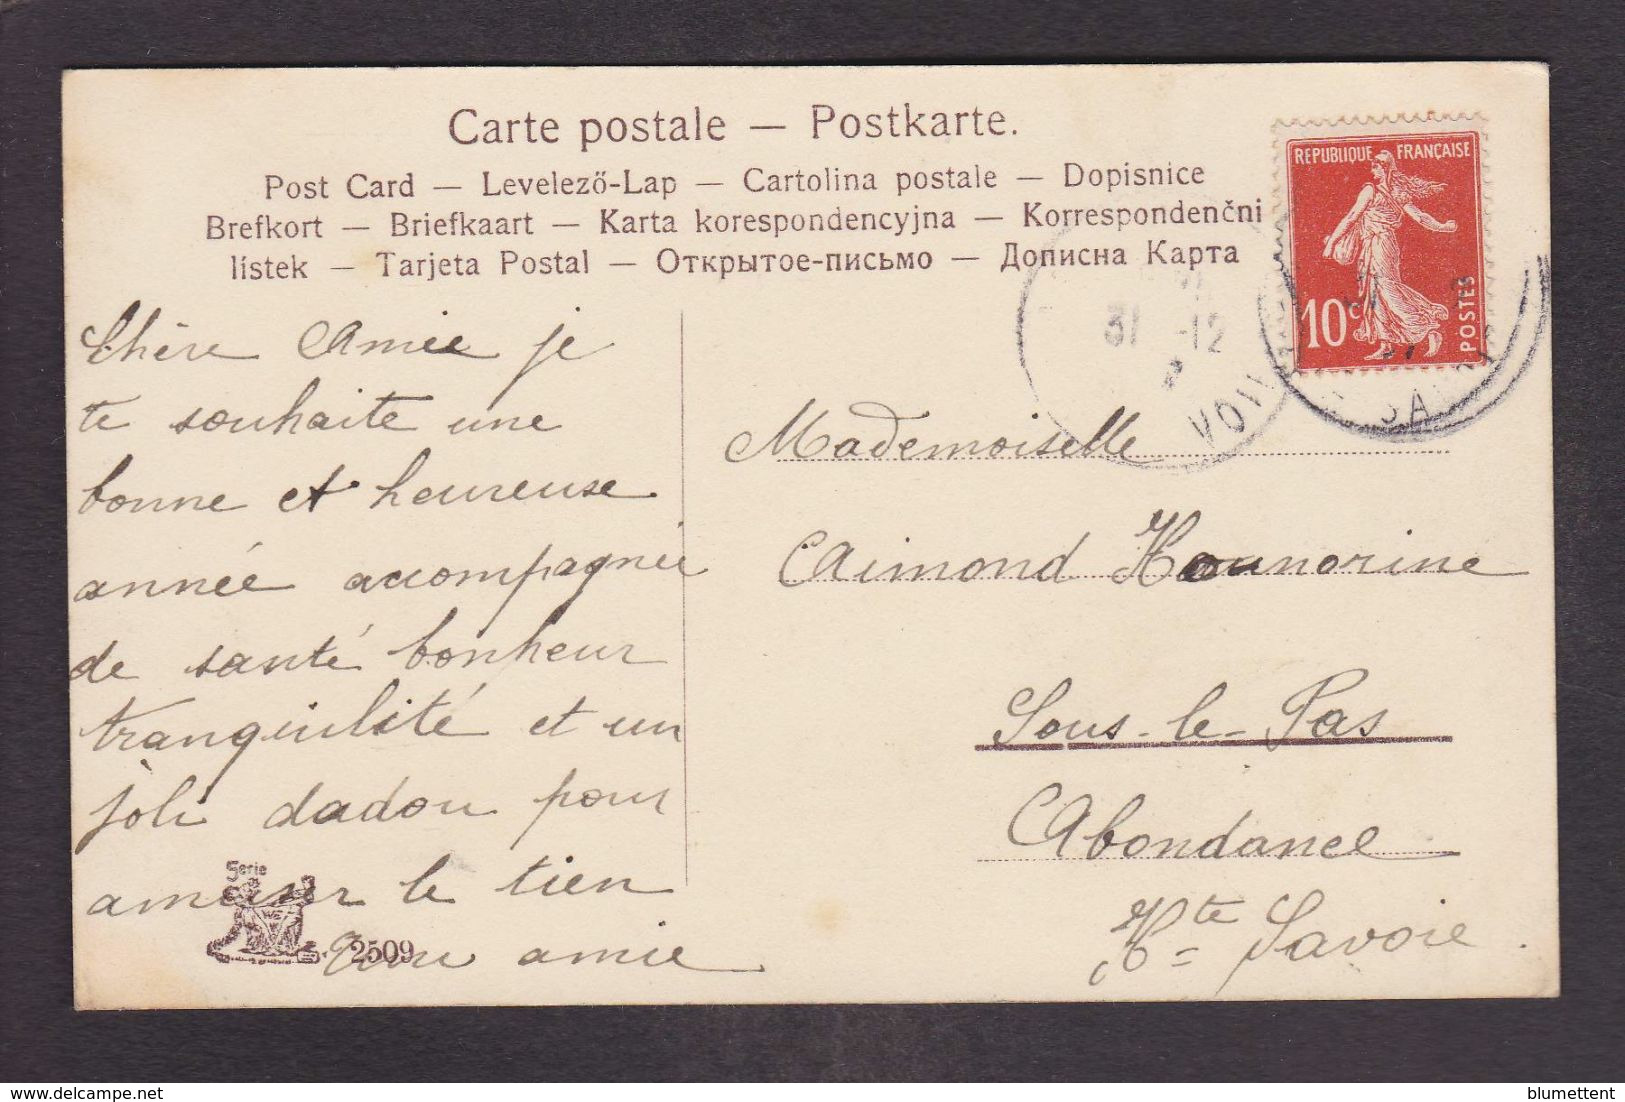 Carte postale — Postkarte.
Post Card — Levelező-Lap — Cartolina postale — Dopisnice
Brefkort — Briefkaart — Karta korespondencyjna — Korrespondenčni
lístek — Tarjeta Postal — Открытое-письмо — Дописна Карта
REPUBLIQUE FRANÇAISE
10c
POSTES
31 -12
SA
Chère Amie je
te souhaite une
bonne et heureuse
année accompagnée
de santé bonheur
tranquilité et un
joli dadou pour
amuser le tien
amie
Serie
WE
2509
Mademoiselle
Aimond Hounorine
Sous-le-Pas
Abondance
Hte Savoie
delcampe.net
blumettent